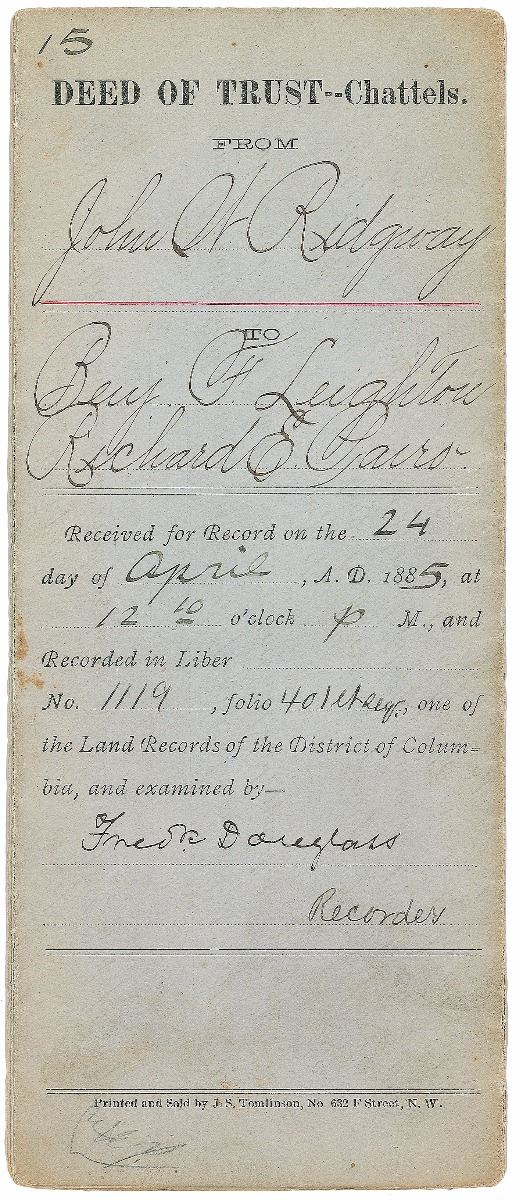 15
DEED OF TRUST--Chattels.
FROM
John W Ridgway
TO
Benj. F Leighton
Richard E Pairo
Received for Record on the 24
day of April, A. D. 1885, at
12 10 o'clock p M., and
Recorded in Liber
No. 1119, folio 401 et seq., one of
the Land Records of the District of Colum-
bia, and examined by—
Fredk Douglass
Recorder
Printed and Sold by J. S. Tomlinson, No. 632 F Street, N. W.